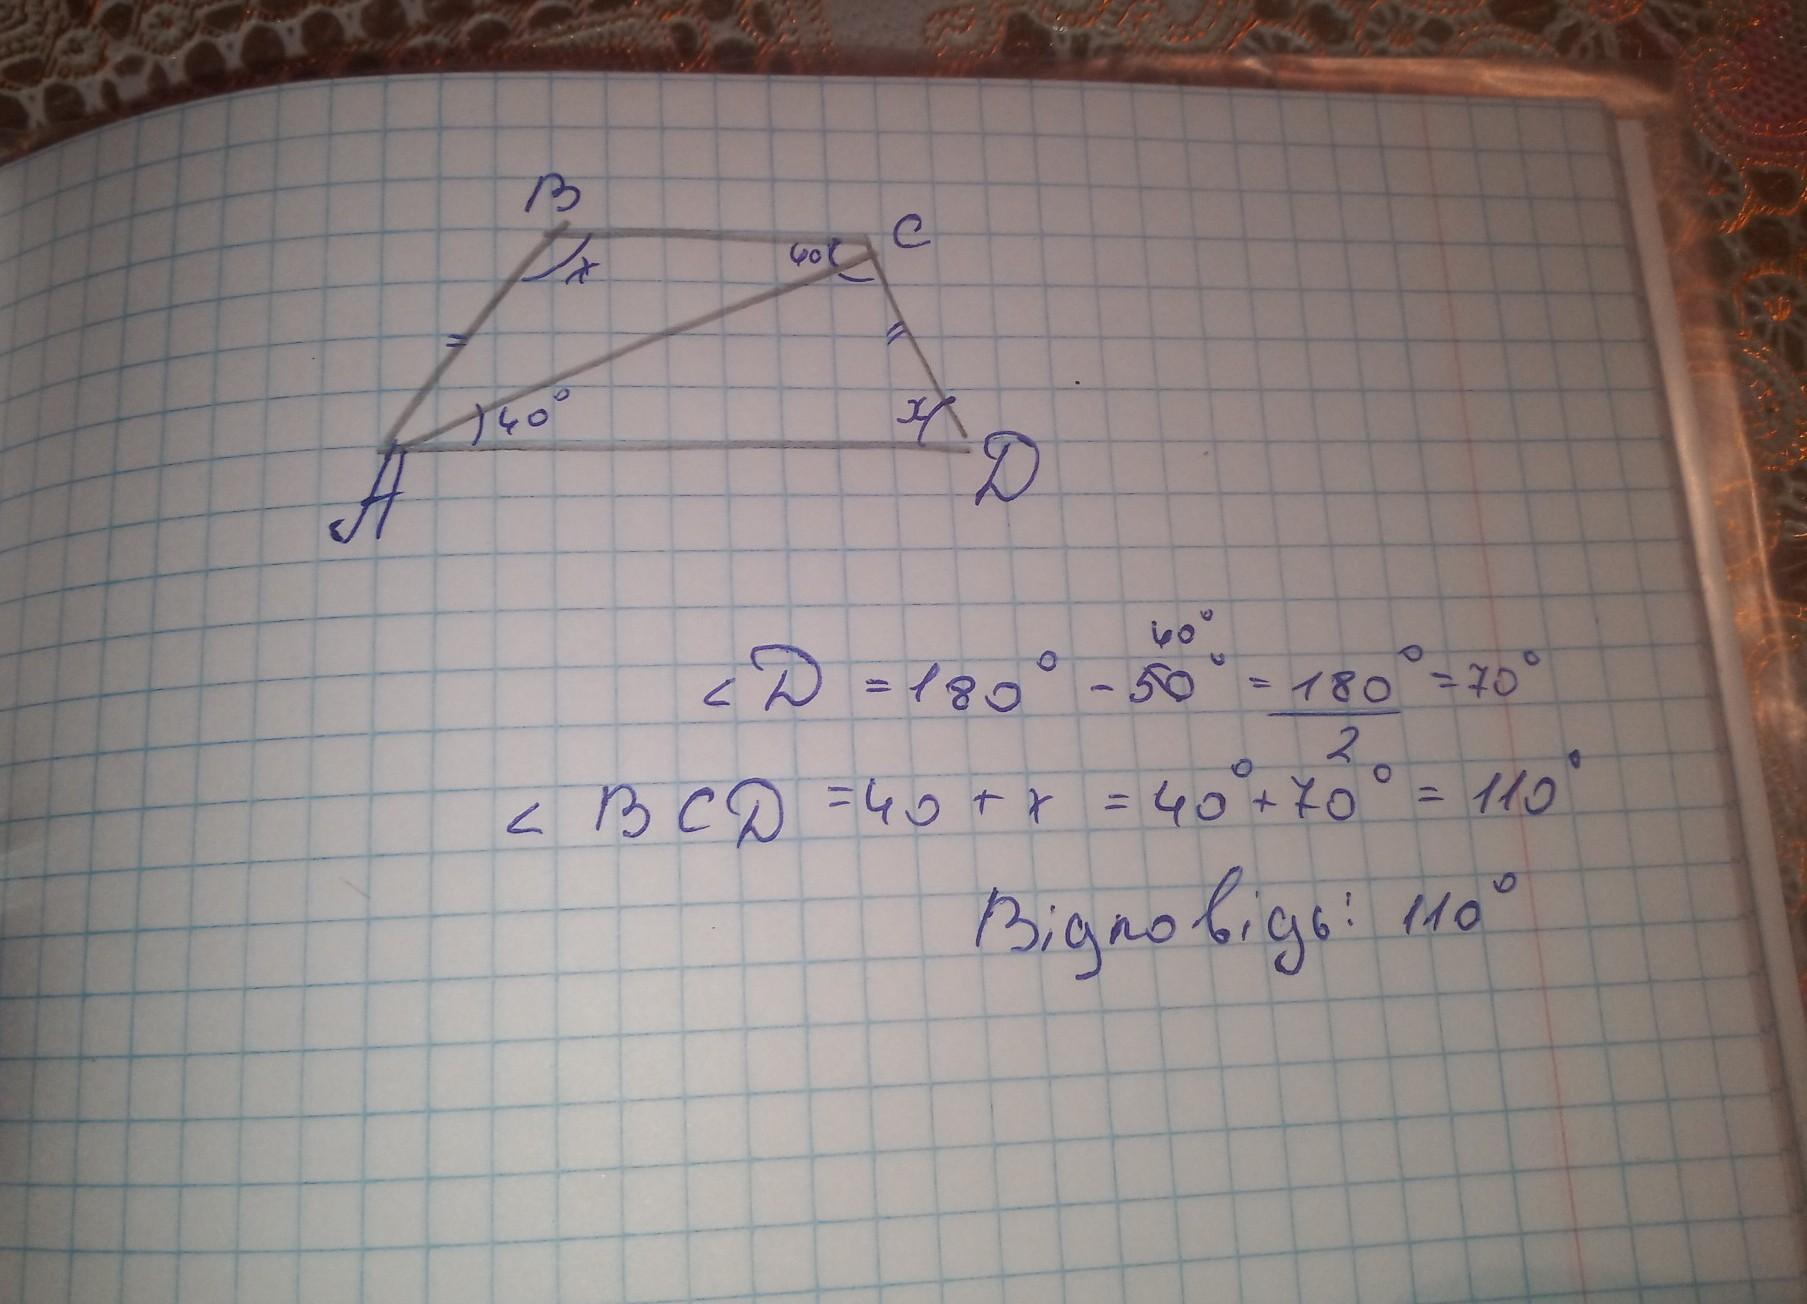 B
C
x
40
40°
x
A
D
40°
< D = 180° - 50° = 180° = 70°
2
< BCD = 40 + x = 40° + 70° = 110°
Відповідь: 110°